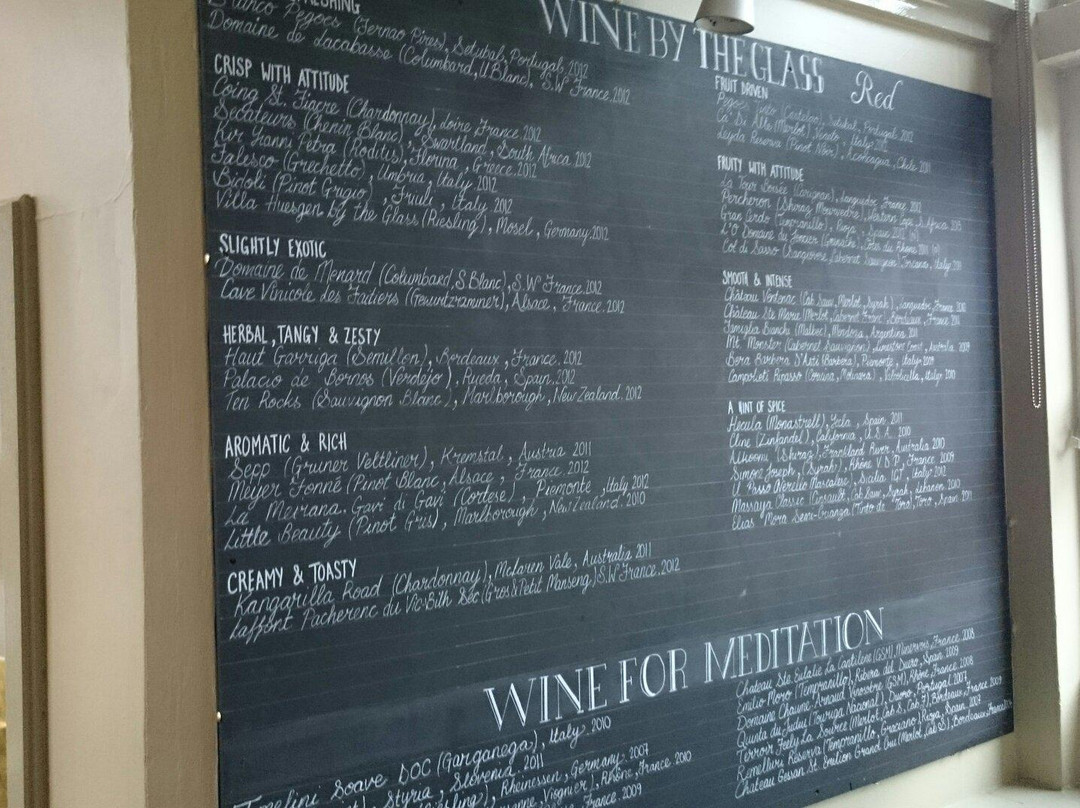 WINE BY THE GLASS
Blanco Pegoes (Fernao Pires), Setubal, Portugal, 2012
Domaine de Lacabasse (Columbard, U Blanc), S.W France. 2012
CRISP WITH ATTITUDE
Coing St. Fiacre (Chardonnay), Loire France. 2012
Secateurs (Chenin Blanc), Swartland, South Africa 2012
Kir Yianni Petra (Roditis), Florina, Greece. 2012
Falesco (Grechetto), Umbria, Italy 2012
Bidoli (Pinot Grigio), Friuli, Italy 2012
Villa Huesgen by the Glass (Riesling), Mosel, Germany. 2012
SLIGHTLY EXOTIC
Domaine de Menard (Columbard, S Blanc), S.W France. 2012
Cave Vinicole des Faitiers (Gewurtzraminer), Alsace, France. 2012
HERBAL, TANGY & ZESTY
Haut Garriga (Semillen), Bordeaux, France. 2012
Palacio de Bornos (Verdejo), Rueda, Spain. 2012
Ten Rocks (Sauvignon Blanc), Marlborough, New Zealand. 2012
AROMATIC & RICH
Sepp (Gruner Vettliner), Kremstal, Austria 2011
Meyer Fonné (Pinot Blanc, Alsace, France. 2012
La Meirana. Gavi di Gavi (Cortese), Piemonte, Italy 2012
Little Beauty (Pinot Gris), Marlborough, New Zealand. 2010
CREAMY & TOASTY
Kangarilla Road (Chardonnay), Mclaren Vale, Australia 2011
Laffont Pacherenc du Vic-Bilh Sec (Gros & Petit Manseng) S.W France. 2012
Red
FRUIT DRIVEN
Pegoes (Castelao), Setubal, Portugal 2012
Ca' Di Alte (Merlot), Veneto, Italy
Leyda Reserva (Pinot Noir), Aconcagua, Chile 2011
FRUITY WITH ATTITUDE
La Tour Boisée (Carignan), Languedoc, France 2012
Percheron (Shiraz Mourvedre), Western Cape, S. Africa
Gran Cerdo (Tempranillo), Rioja, Spain
L'O Domaine de (Grenache), Côtes du Rhône 2011
Col di Sasso (Sangiovese Cabernet Sauvignon) Toscana, Italy 2011
SMOOTH & INTENSE
Château Ventenac (Cab Sauv, Merlot, Syrah), Languedoc, France 2010
Château Ste Marie (Merlot, Cabernet Franc), Bordeaux, France
Famiglia Bianchi (Malbec), Mendoza, Argentina 2011
Mt Monster (Cabernet Sauvignon), Limestone Coast, Australia 2009
Bera Barbera D'Asti (Barbera), Piemonte, Italy
Campolieti Ripasso (Corvina, Molinara), Valpolicella, Italy 2010
A HINT OF SPICE
Hecula (Monastrell), Yecla, Spain. 2011
Cline (Zinfandel), California, U.S.A. 2010
Alkoomi (Shiraz), Frankland River, Australia 2010
Simon Joseph, (Syrah), Rhône V D P, France 2009
Il Passo Nerello Mascalese, Sicilia IGT, Italy 2012
Massaya Classic (Cinsault, Cab Sauv, Syrah), Lebanon 2010
Elias Mora Semi-Crianza (Tinto de Toro), Toro, Spain 2011
WINE FOR MEDITATION
Soave DOC (Garganega), Italy 2010
Styria, Slovenia. 2011
Rheinessen, Germany. 2007
Viognier), Rhône, France 2010
France. 2009
Chateau Ste Eulalie La Cantilene (GSM), Minervois, France. 2008
Emilio Moro (Tempranillo), Ribera del Duero, Spain. 2009
Domaine Chaume Arnaud Vinsobres (GSM), Rhône, France. 2008
Quinta do Judeu (Touriga Nacional), Duero, Portugal. 2007
Terroir Feely La Source (Merlot, Cab S, Cab F), Bordeaux, France 2009
Remelluri Reserva (Tempranillo, Graciano) Rioja, Spain. 2007
Chateau Gessan St. Emilion Grand Cru (Merlot, Cab S), Bordeaux, France